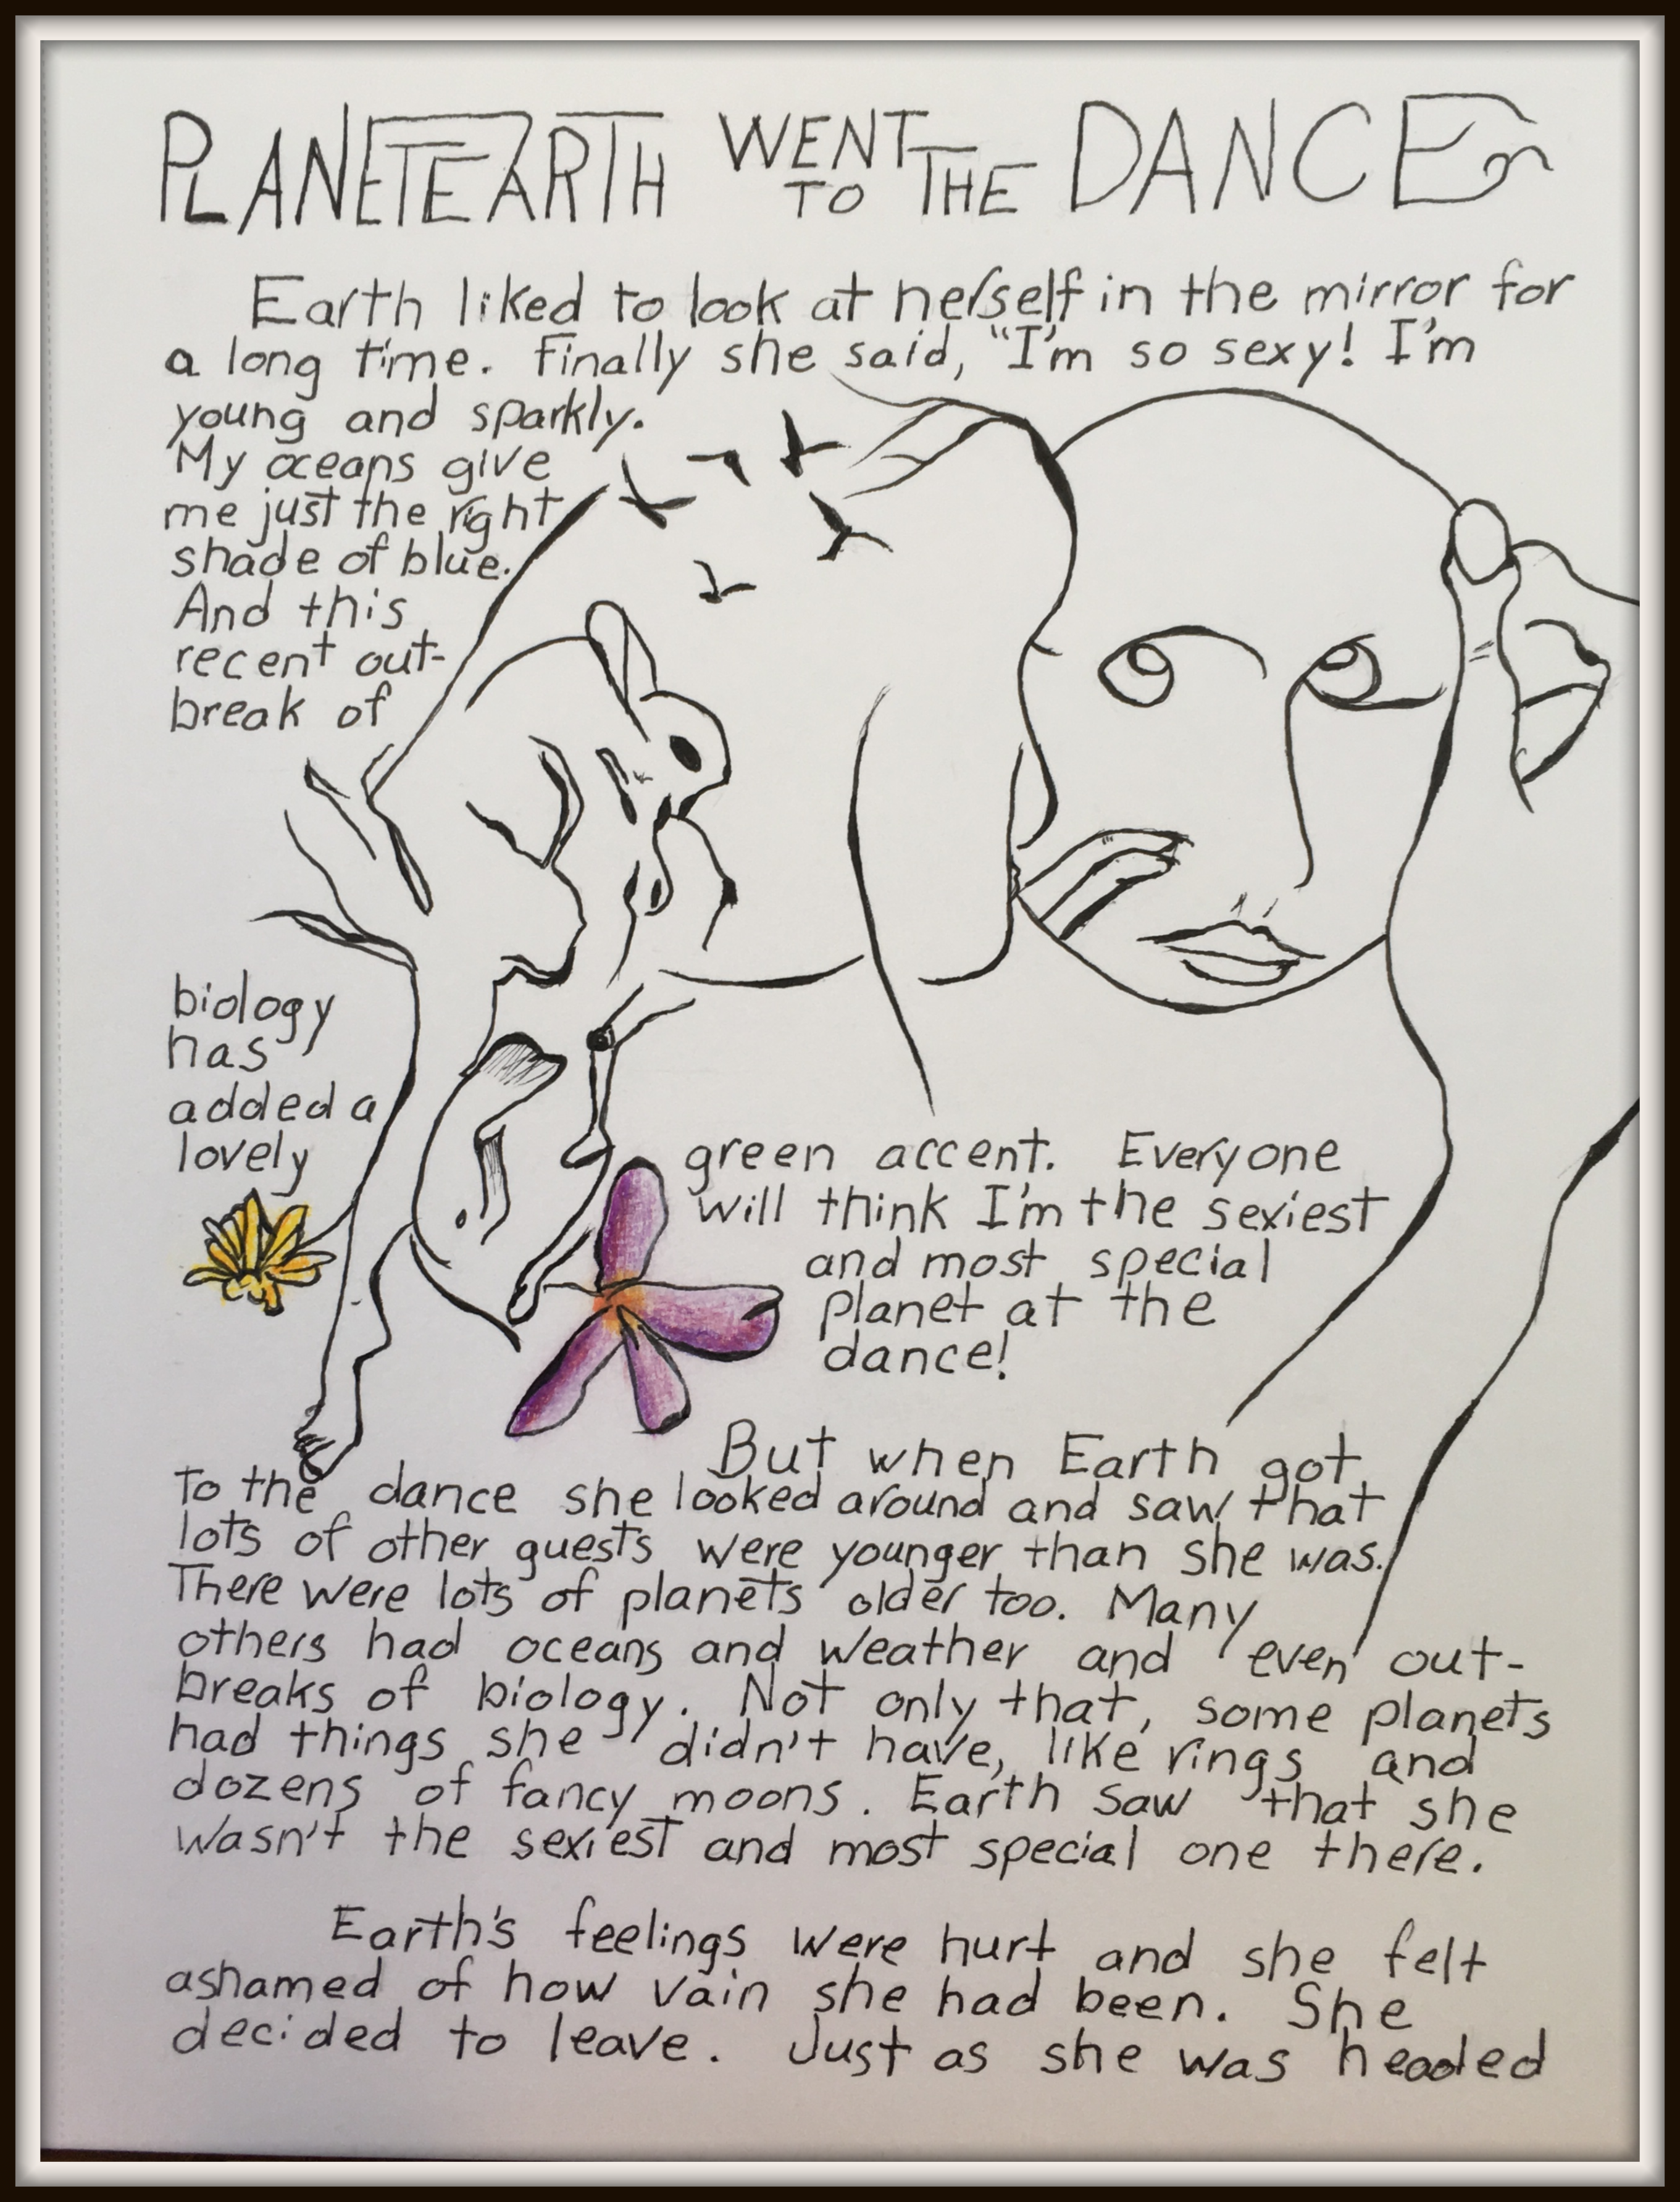 PLANET EARTH WENT TO THE DANCE
Earth liked to look at herself in the mirror for
a long time. Finally she said, "I'm so sexy! I'm
young and sparkly.
My oceans give
me just the right
shade of blue.
And this
recent out-
break of
biology
has
added a
lovely
green accent. Everyone
will think I'm the sexiest
and most special
planet at the
dance!
But when Earth got
to the dance she looked around and saw that
lots of other guests were younger than she was.
There were lots of planets older too. Many
others had oceans and weather and even out-
breaks of biology. Not only that, some planets
had things she didn't have, like rings and
dozens of fancy moons. Earth saw that she
wasn't the sexiest and most special one there.
Earth's feelings were hurt and she felt
ashamed of how vain she had been. She
decided to leave. Just as she was headed